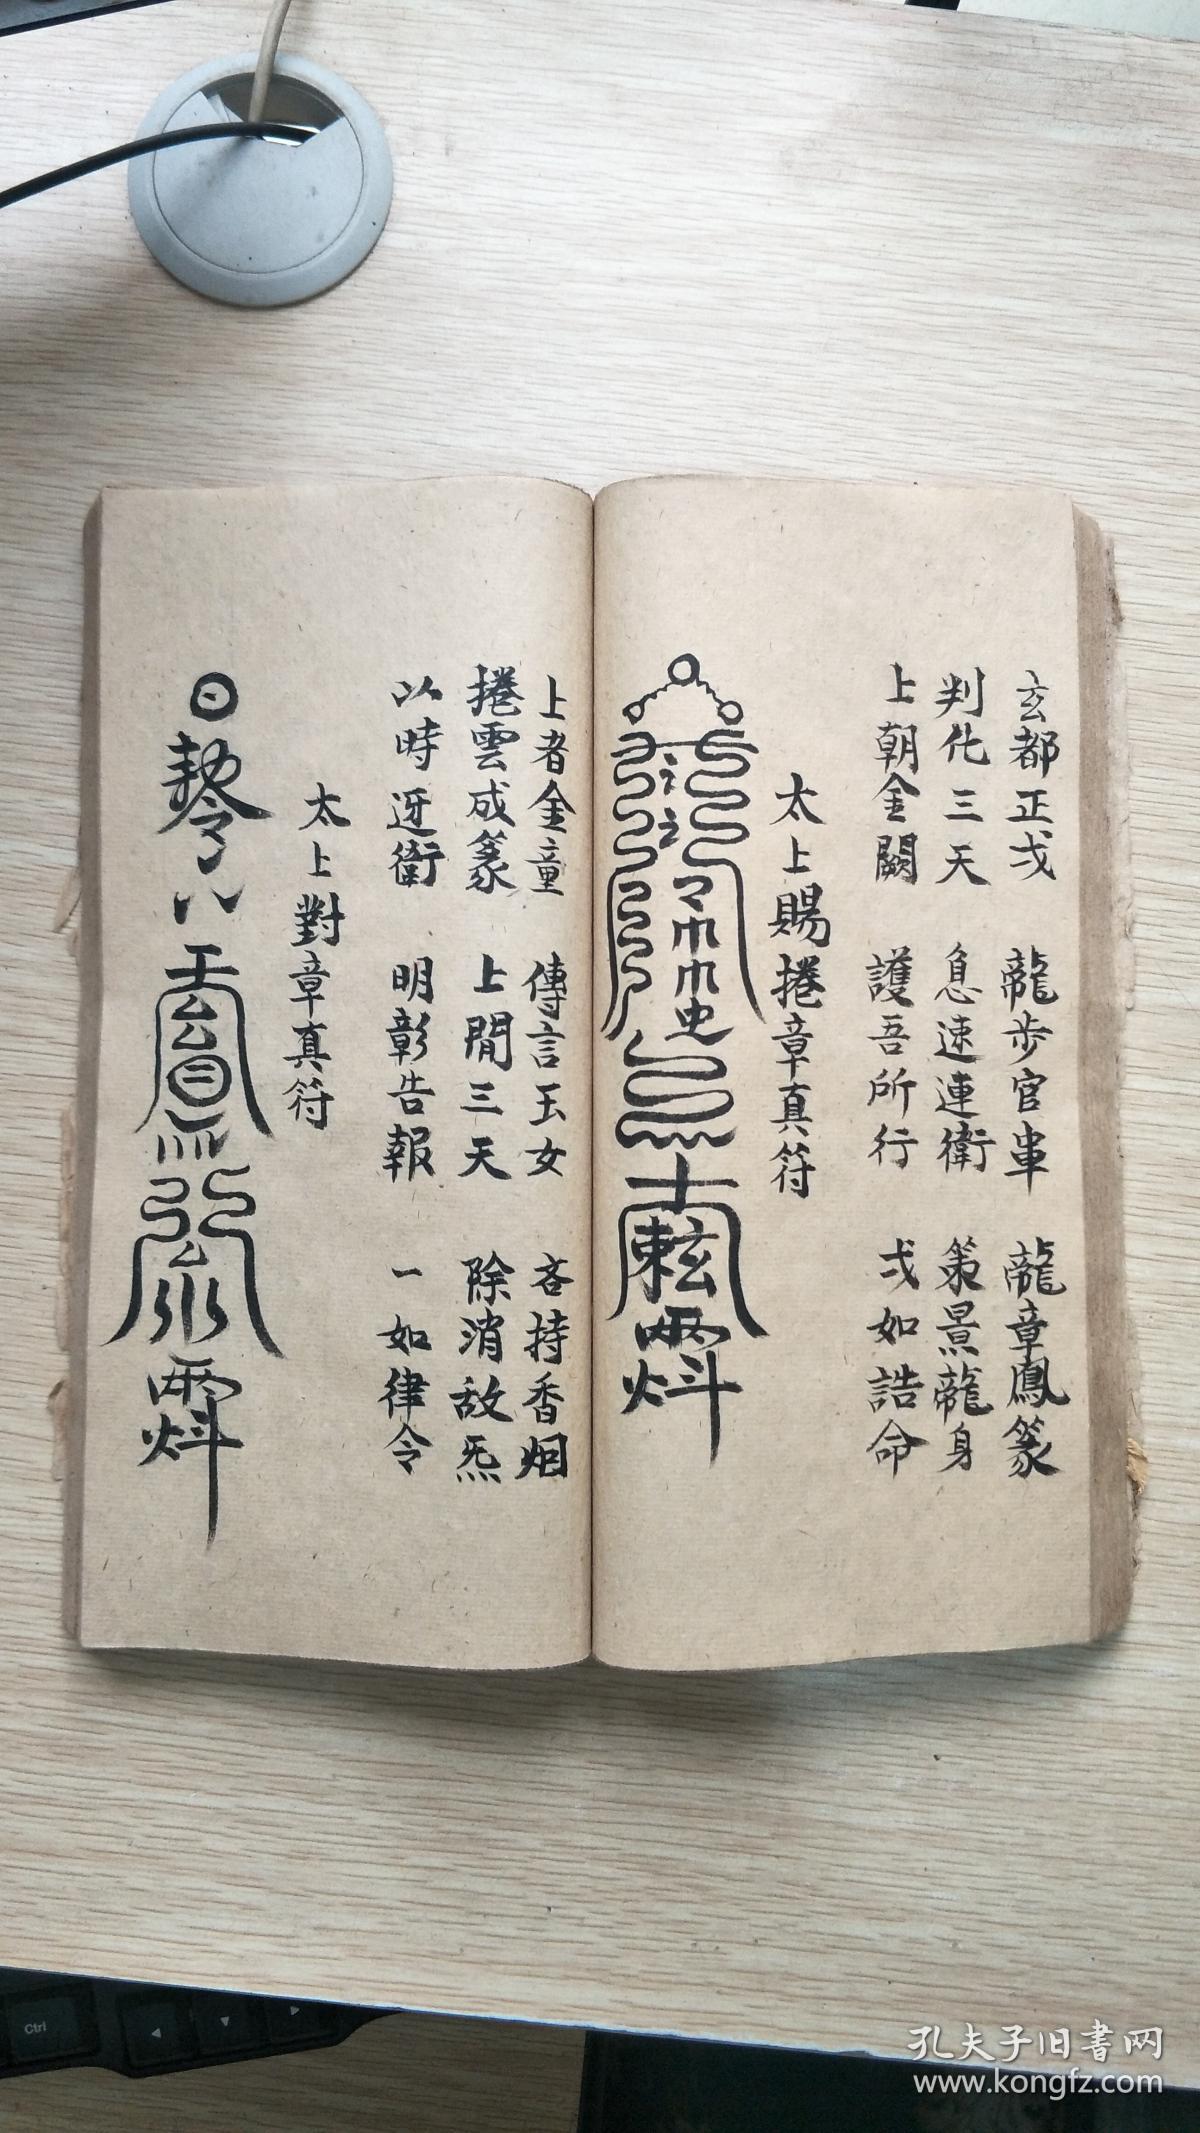 玄都正戈 龍步官軍 龍章鳳篆
判化三天 急速連衛 策景龍身
上朝金闕 護吾所行 戈如誥命
太上賜捲章真符
上者金童 傳言玉女 吝持香烟
捲雲成篆 上聞三天 除消故炁
以時迓衛 明彰告報 一如律令
太上對章真符
孔夫子旧書网
www.kongfz.com
Ctrl